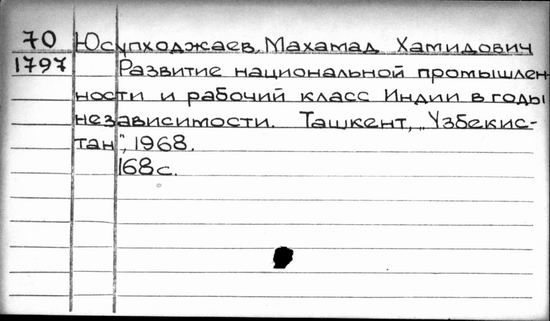 70 Юсупходжаев, Махамад Хамидович
1797 Развитие национальной промышлен-
ности и рабочий класс Индии в годы
независимости. Ташкент, „Узбекис-
тан", 1968.
168с.